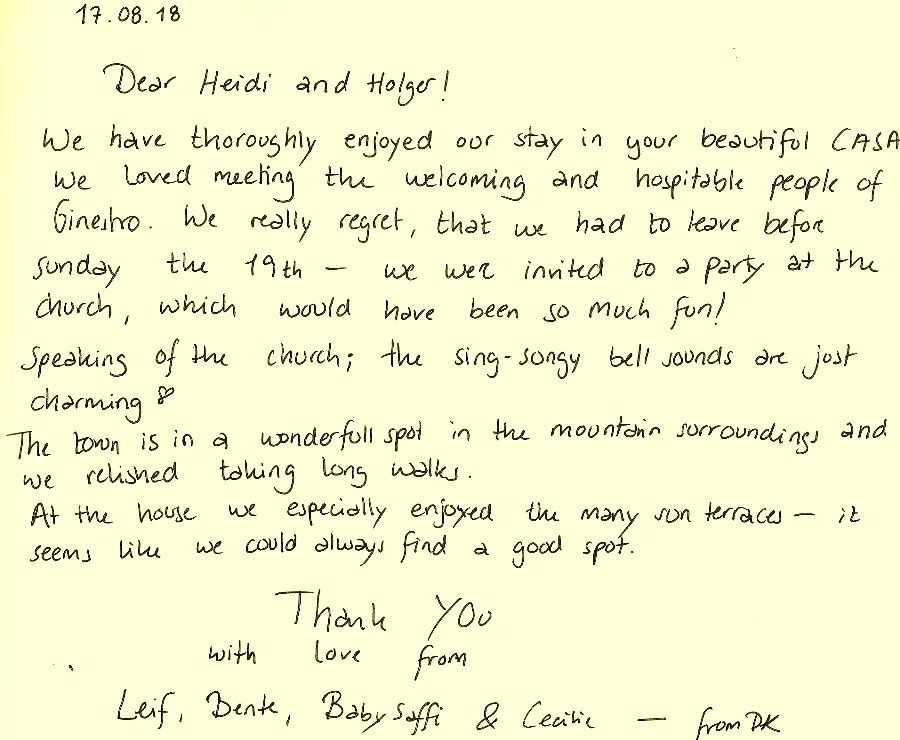 17.08.18
Dear Heidi and Holger!
We have thoroughly enjoyed our stay in your beautiful CASA
We loved meeting the welcoming and hospitable people of
Ginestro. We really regret, that we had to leave before
sunday the 19th – we were invited to a party at the
church, which would have been so much fun!
Speaking of the church; the sing-songy bell sounds are just
charming
The town is in a wonderfull spot in the mountain surroundings and
we relished taking long walks.
At the house we especially enjoyed the many sun terraces – it
seems like we could always find a good spot.
Thank YOU
with love from
Leif, Bente, Baby Saffi & Cecilie – from DK